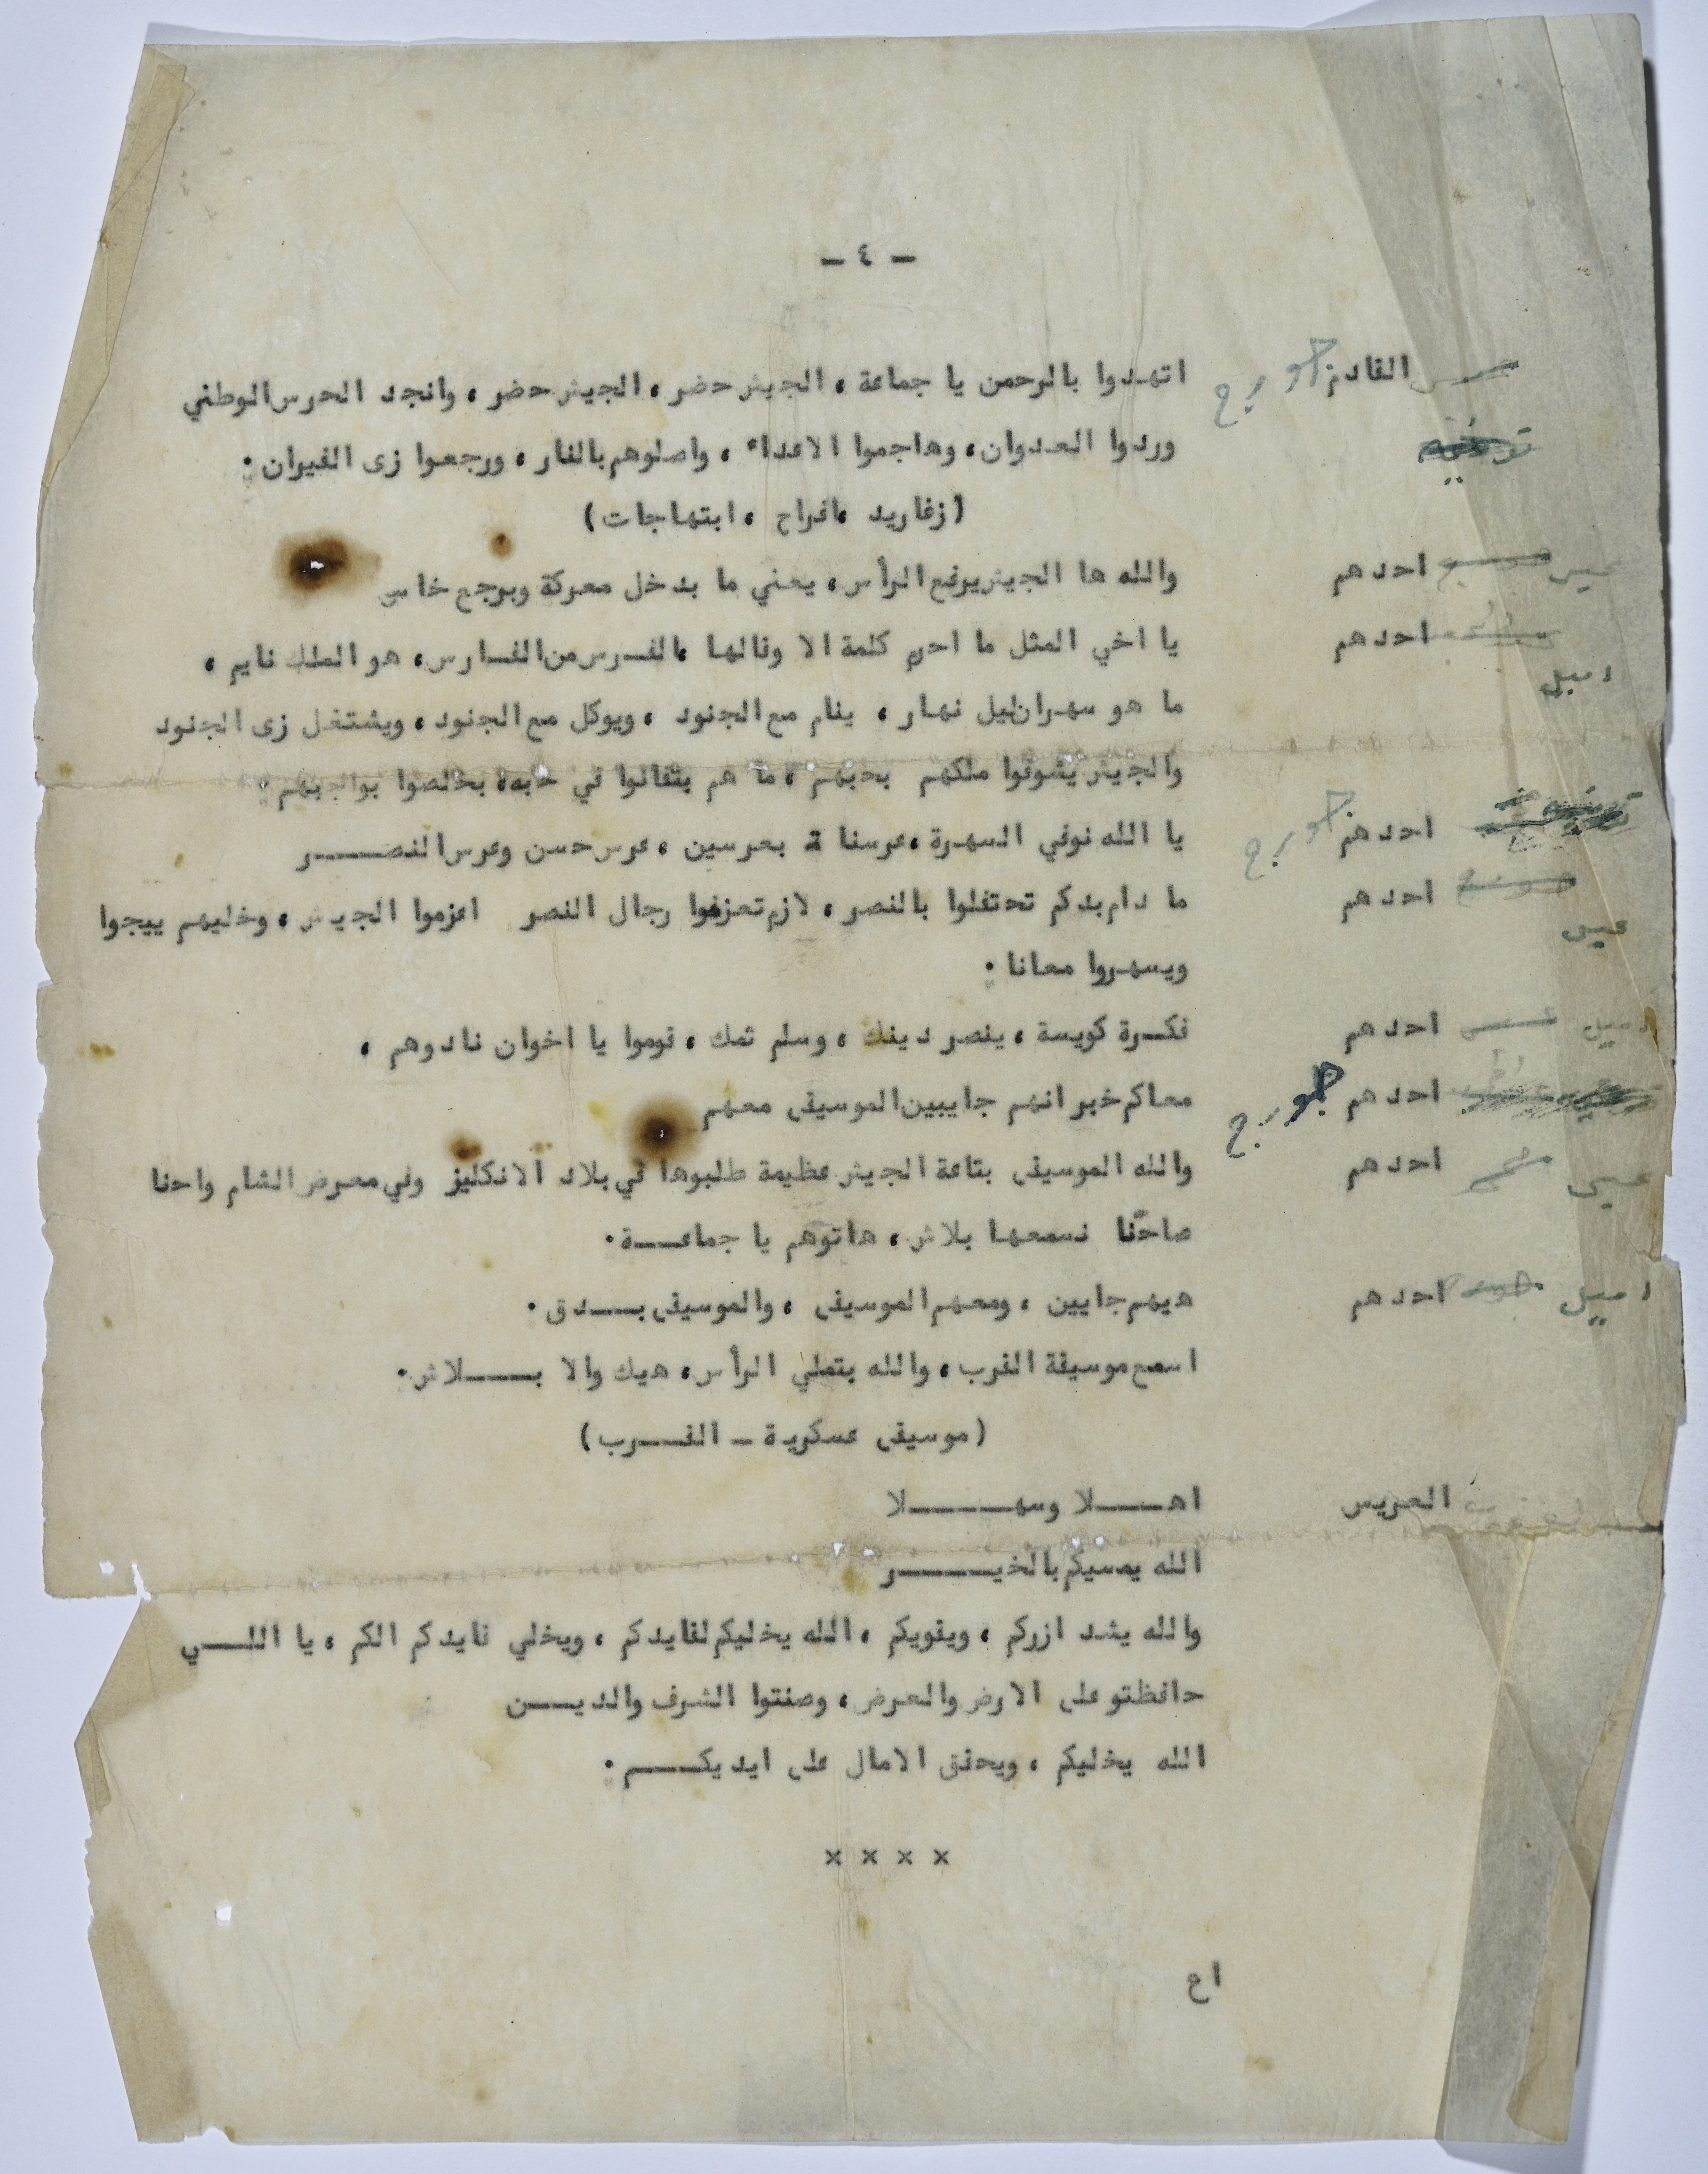 - ٤ -
القادم جورج اتهدوا بالرحمن يا جماعة ، الجيش حضر ، الجيش حضر ، وانجد الحرس الوطني
وردوا العدوان ، وهاجموا الاعداء ، واصلوهم بالنار ، ورجعوا زى الفيران .
(زغاريد ، افراح ، ابتهاجات)
احدهم والله ها الجيش يرفع الرأس ، يعني ما بدخل معركة وبرجع خاسر
احدهم يا اخي المثل ما احرم كلمة الا وقالها ، الفرس من الفارس ، هو الملك نايم ،
اميل
ما هو سهران ليل نهار ، ينام مع الجنود ، ويوكل مع الجنود ، ويشتغل زى الجنود
والجيش يشوفوا ملكهم بحبهم ، ما هم بتفانوا في حبه ، بخالصوا بواجبهم .
احدهم جورج يا الله نوفي السهرة ، عرسنا ة بعرسين ، عرس حسن وعرس النصـــر
احدهم ما دام بدكم تحتفلوا بالنصر ، لازم تعزفوا رجال النصر اعزموا الجيش ، وخليهم ييجوا
عيسى
ويسهروا معانا .
اميل احدهم فكـرة كويسة ، ينصر دينك ، وسلم ثمك ، قوموا يا اخوان نادوهم ،
احدهم جورج معاكم خبر انهم جايبين الموسيقى معهم
عيسى احدهم والله الموسيقى بتاعة الجيش عظيمة طلبوها في بلاد الانكليز وفي معرض الشام واحنا
صاحّنا نسمعها بلاش ، هاتوهم يا جماعـــة .
اميل احدهم هيهم جايين ، ومعهم الموسيقى ، والموسيقى بـــدق .
اسمع موسيقة القرب ، والله بتعلي الرأس ، هيك والا بــــلاش .
(موسيقى عسكرية - القـــرب)
العريس اهــــلا وسهــــــلا
الله يمسيكم بالخيـــــر
والله يشد ازركم ، ويقويكم ، الله يخليكم لقايدكم ، ويخلي قايدكم الكم ، يا اللـــي
حافظتو على الارض والعرض ، وصنتوا الشرف والديـــن
الله يخليكم ، ويحقق الامال على ايديكــــم .
× × × ×
اع